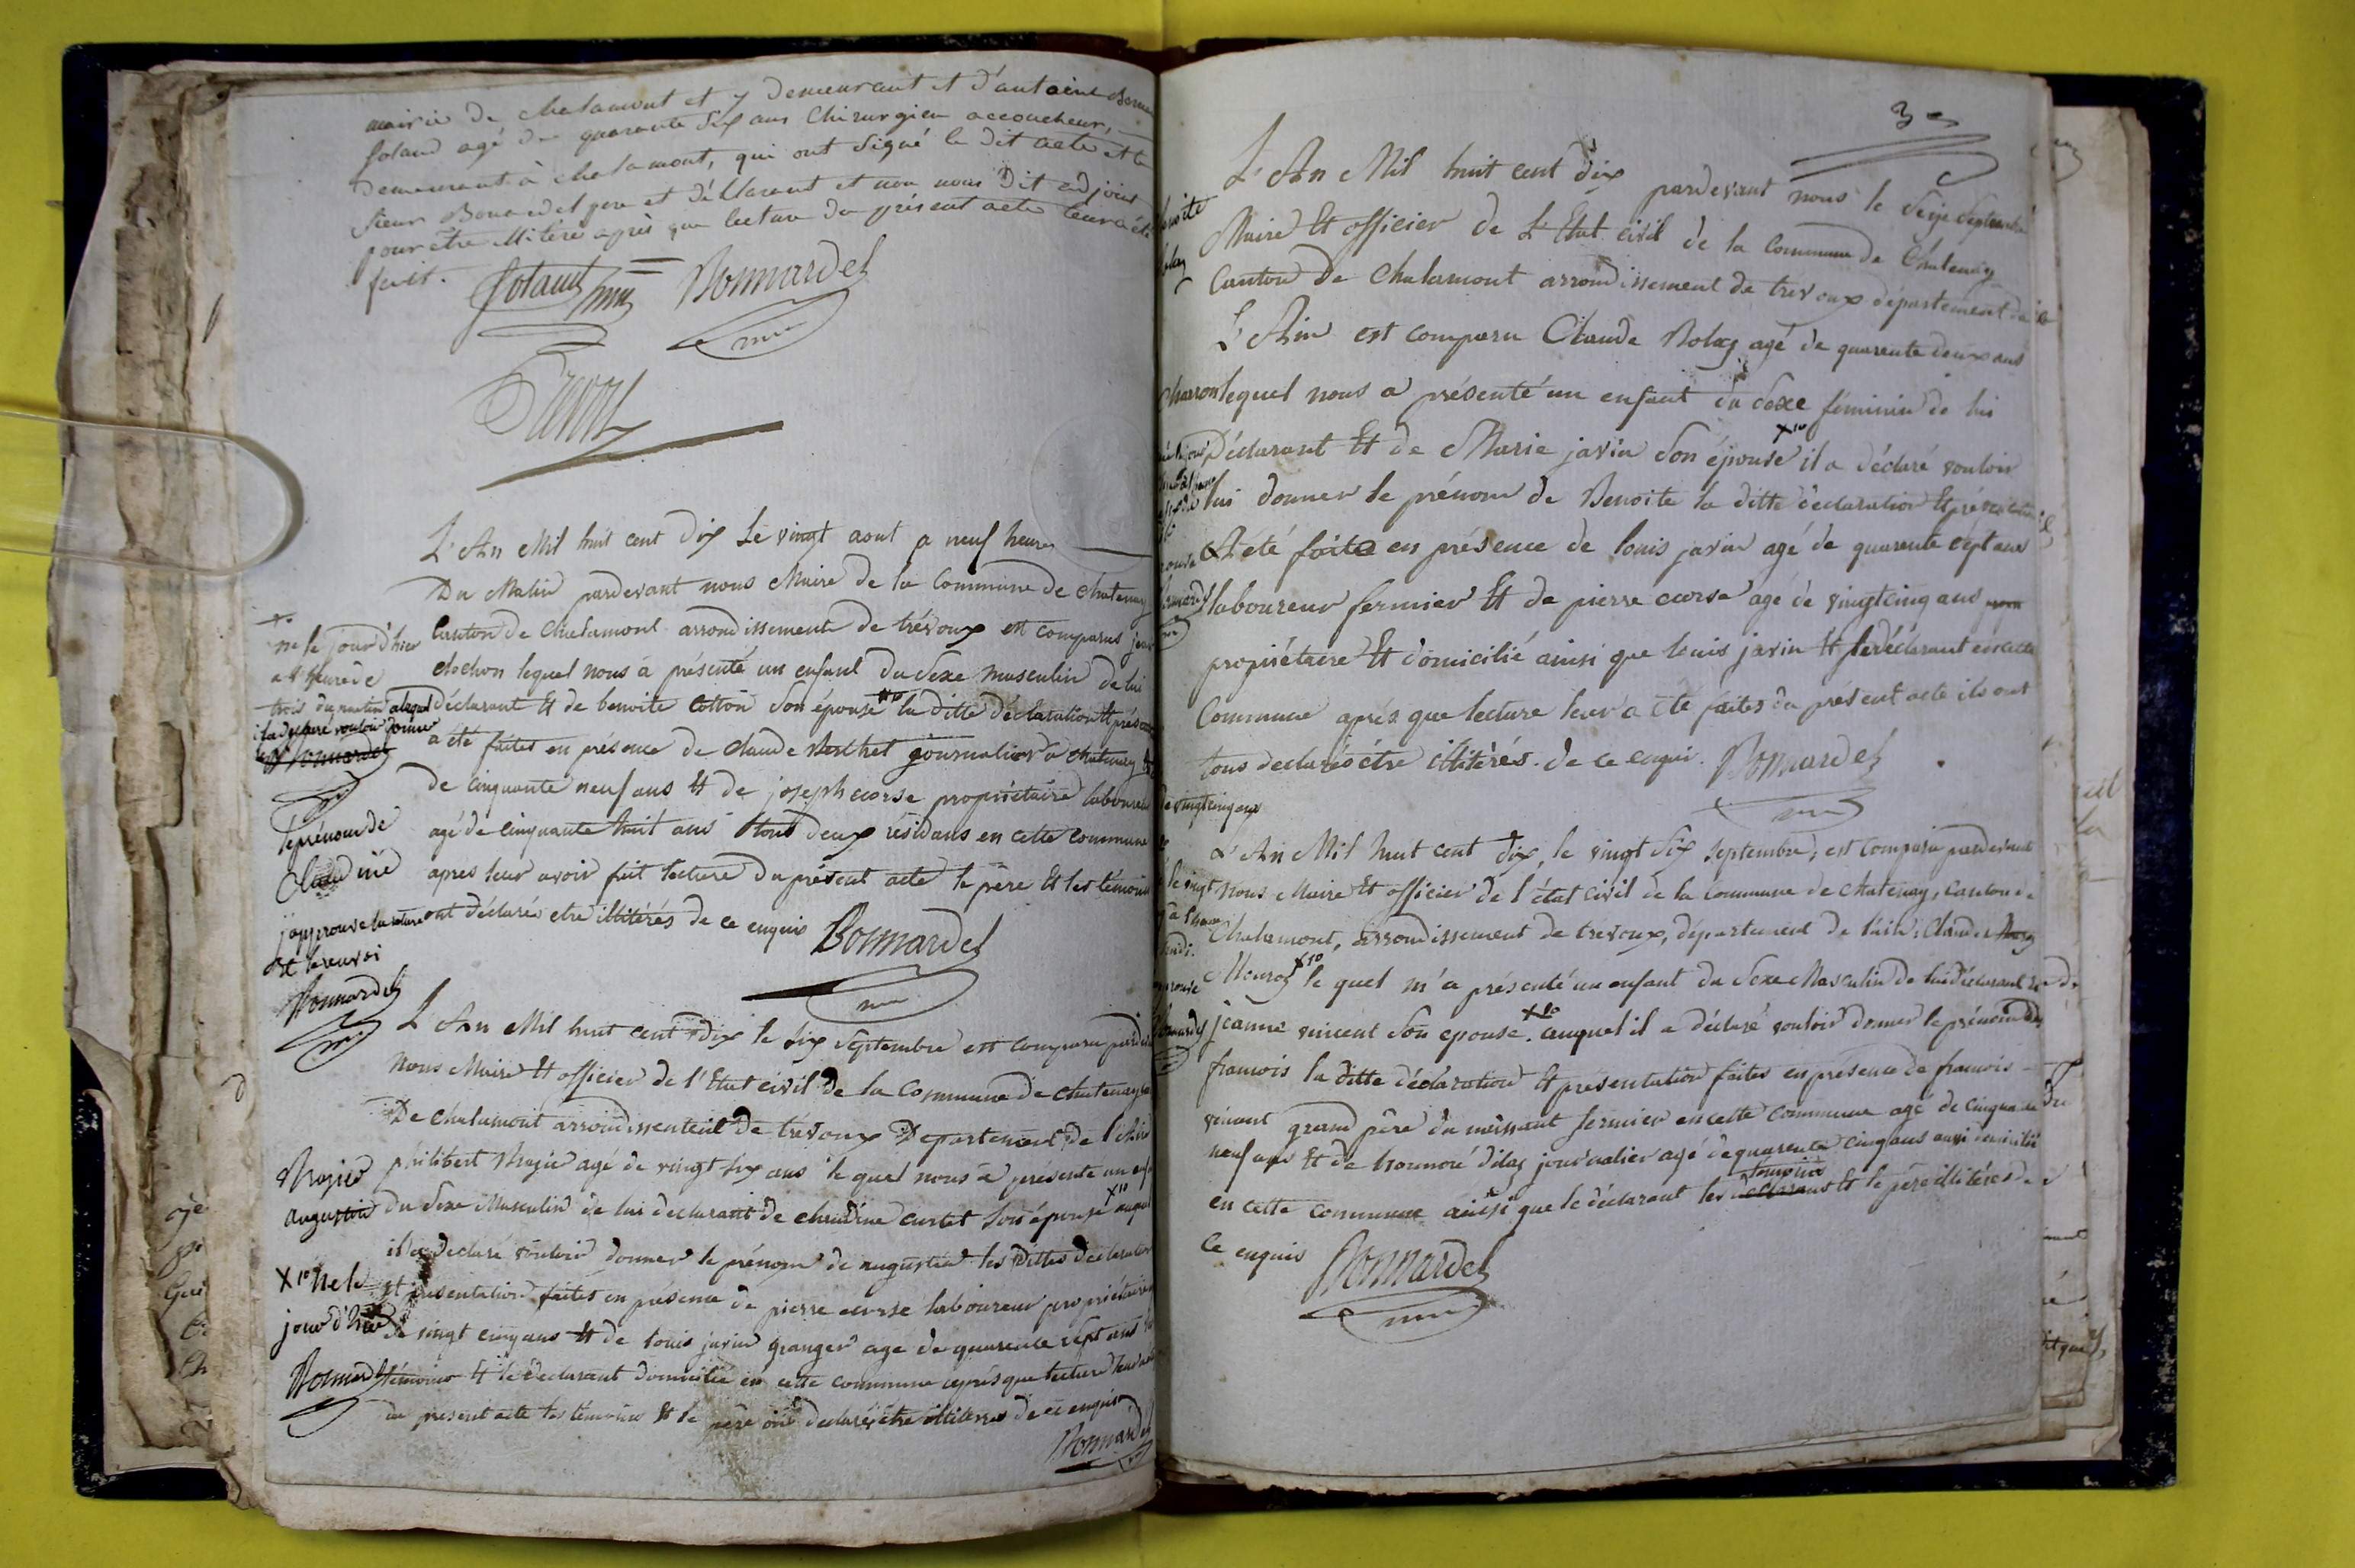 mairie de chalamont et y demeurant et d'antoine
Jolaud agé de quarante six ans Chirurgien accoucheur,
demeurant à chalamont, qui ont signé le dit acte et le
sieur Bonardel pere et déllarent et non nous dit
pour être illitéré après que lecture du présent acte leur a été
fait.
Bonnardel
L'An Mil huit cent dix Le vingt aout a neuf heures
Du Matin pardevant nous Maire de la Commune de chatenay
Canton de chalamont arrondissement de trévoux est comparus
chochon lequel nous à présenté un enfant du sexe masculin de lui
déclarant et de benoite cotton son épouse la ditte déclaration et
a été faites en présence de claude journalier a chatenay
de cinquante neuf ans et de joseph corse propriétaire laboureur
agé de cinquante huit ans tous deux résidans en cette commune
apres leur avoir fait lecture du présent acte le père et les témoins
ont déclarés etre illitérés de ce enquis Bonnardel
né le jour d'hier
a l'heure de
trois du matin alequel
il a declaré vouloir donner
Bonnardel
le prénom de
Claudine
j'approuve la rature
et le renvoi
Bonnardel
L'An Mil huit cent dix le six Septembre est comparu
Nous Maire et officier de l'Etat civil de la Commune de chatenay
De chalamont arrondissement de trévoux Departement de l'Ain
philibert Mugie agé de vingt six ans le quel nous à présenté un
du sexe Masculin de lui declarant de claudine curtet son épouse auquel
il a declaré vouloir donner le prénom de augustin les dittes declaration
et présentation faites en présence de pierre corse laboureur propriétaire
de vingt cinq ans et de louis javin granger age de quarente sept ans
témoins et le declarant domicilié en cette commune après que lecture
du present acte les témoins et le père ont declarés etre illitérés de ce enquis
Bonnardel
augustin
X10 né le
jour d'hier
Bonnardel
3
L'An Mil huit cent dix pardevant nous le Seize Septembre
Maire et officier de L'Etat civil de la Commune de Chatenay
Canton de Chalamont arrondissement de trevoux département de
L'Ain est comparu Claude Bolay agé de quarente deux ans
Charron lequel nous a présenté un enfant du sexe féminin de lui
Déclarant et de Marie javin son épouse X10 il a déclaré vouloir
lui donner le prénom de Benoite la ditte déclaration et
A eté faite en présence de louis javin agé de quarente sept ans
laboureur fermier et de pierre corse agé de vingtcinq ans
propriétaire et domicilié ainsi que louis javin et le déclarant en cette
Commune après que lecture leur à été faites du présent acte ils ont
tous declarés être illitérés. de ce enquis. Bonnardel
de vingtcinq ans
L'An Mil huit cent dix, le vingt six septembre, est comparu pardevant
nous Maire et officier de l'état civil de la Commune de chatenay, canton de
Chalamont, arrondissement de trevoux, département de l'ain, Claude
X10 le quel m'a présenté un enfant du sexe Masculin de lui déclarant
jeanne vincent son epouse. X10 auquel il a déclaré vouloir donner le prénom de
francois la ditte déclaration et présentation faites en présence de francois
vincent grand père du naissant fermier en cette commune agé de cinquante
neuf ans et de honnoré dilas journalier agé de quarente cinq ans aussi domicilié
en cette commune ainsi que le déclarant les témoins et le père illitérés. de
ce enquis Bonnardel